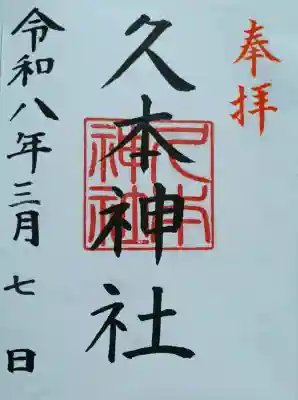 奉拝
久本神社
久本
神社
令和八年三月七日